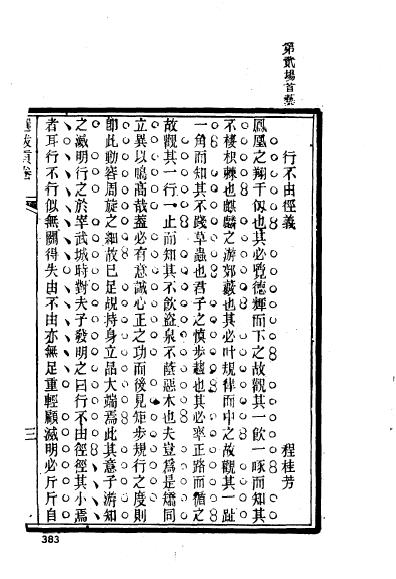 第貳場首藝
行不由徑義
程桂芳
鳳凰之翔千仞也其必覽德輝而下之故觀其一飲一啄而知其
不棲枳棘也麒麟之游郊藪也其必叶規律而中之故觀其一趾
一角而知其不踐草蟲也君子之慎步趨也其必率正路而循之
故觀其一行一止而知其不飲盜泉不蔭惡木也夫豈為是矯同
立異以鳴高哉蓋必有意誠心正之功而後見矩步規行之度則
即此動容周旋之細故已足覘持身立品大端焉此其意子游知
之滅明行之於宰武城時對夫子發明之曰行不由徑徑其小焉
者耳行不行似無關得失由不由亦無足重輕顧滅明必斤斤自
三
383